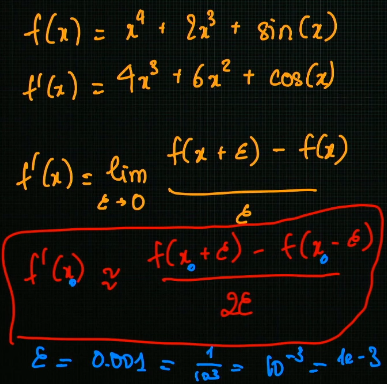 f(x) = x⁴ + 2x³ + sin(x)
f'(x) = 4x³ + 6x² + cos(x)
f'(x) = lim ε→0 (f(x + ε) - f(x)) / ε
f'(x₀) ≈ (f(x₀ + ε) - f(x₀ - ε)) / 2ε
ε = 0.001 = 1/10³ = 10⁻³ = 1e-3